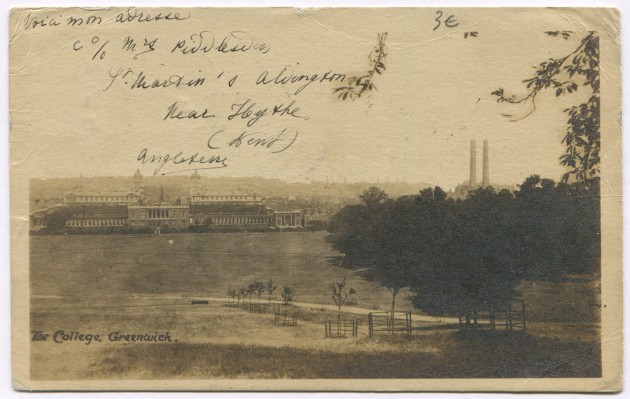 Voici mon adresse
3€
c/o Mrs Piddlesden
St Martin's Alvington
Near Hythe
(Kent)
Angleterre
The College, Greenwich.